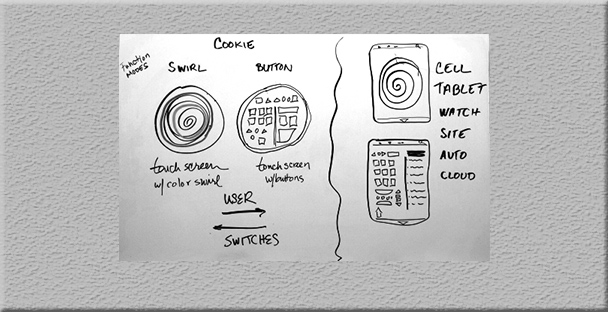 COOKIE
Function
MODES
SWIRL
BUTTON
touch screen
w/color swirl
touch screen
w/buttons
USER
SWITCHES
CELL
TABLET
WATCH
SITE
AUTO
CLOUD